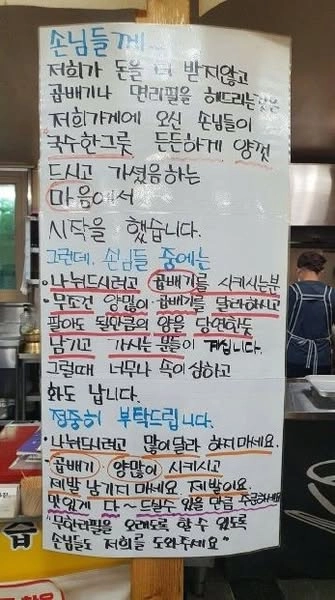 손님들께~
저희가 돈을 더 받지않고
곱배기나 면리필을 해드리는것은
저희가게에 오신 손님들이
국수한그릇 든든하게 양껏
드시고 가셨음하는
마음에서
시작을 했습니다.
그런데, 손님들 중에는
·나눠드시려고 곱배기를 시키시는분
·무조건 양많이 곱배기를 달라하시고
팔아도 될만큼의 양을 당연한듯
남기고 가시는 분들이 계십니다.
그럴때 너무나 속이 상하고
화도 납니다.
정중히 부탁드립니다.
·나눠드시려고 많이달라 하지마세요.
·곱배기 양많이 시키시고
제발 남기지 마세요. 제발이요.
맛있게 다~드실수 있을 만큼 주문하세요
"무한리필을 오래도록 할 수 있도록
손님들도 저희를 도와주세요"
습